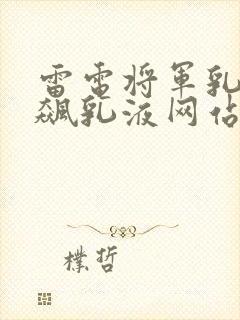 雷电将军乳
飙乳液网站
樸哲